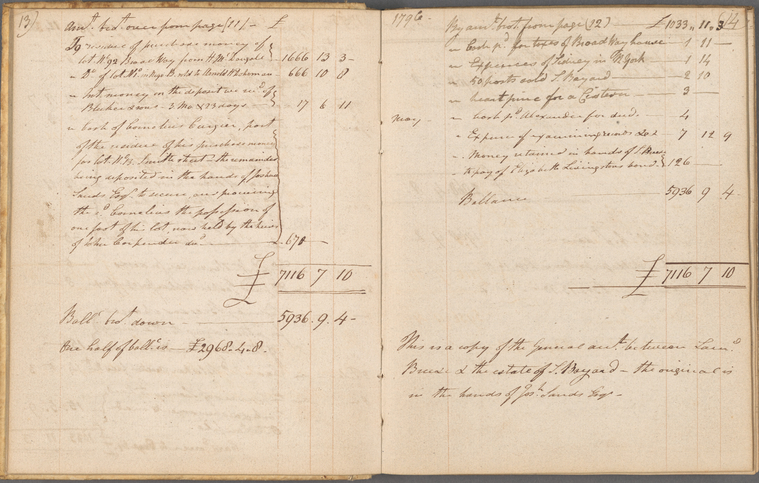 13)
amt. brot. over from page (11) — £
To residue of purchase money of
lot No. 92 Broad Way from H McDougale 1666 13 3 —
Do. of lot No. 666 10 8
int. money on the deposit
3 Mo. & 23 days 17 6 11
cash of Cornelius part
of the residue of his purchase money
for lot No. Smith Street — the remainder
being deposited in the hands of Joshua
Sands Esqr. to secure
the sd. Cornelius the possession of
one part of his lot, now held by the heirs
of John Carpender 678 —
£ 7116 7 10
Balle. brot. down — 5936.. 9.. 4 —
One half of balle. is — £2968.4.8.
1796.
(14
By amt. brot. from page (12) — £ 1033.. 11.. 3
" Cash pd. for taxes of Broad Way house 1 11 —
" Expences of Sidney in N York — 1 14
" 50 posts sold S Bayard — 2 10
" heart pine for a Cistern — 3 —
May — " cash pd. Alexander for do. — 4
" Expence of examining &c 7 12 9
" Money retained in hands of S
to pay of Elizabeth Livingstons bond. 126
Ballance — 5936 9 4 —
£ 7116 7 10
This is a copy of the General amt. between Saml.
& the estate of S. Bayard — the original is
in the hands of Jos. Sands Esqr —